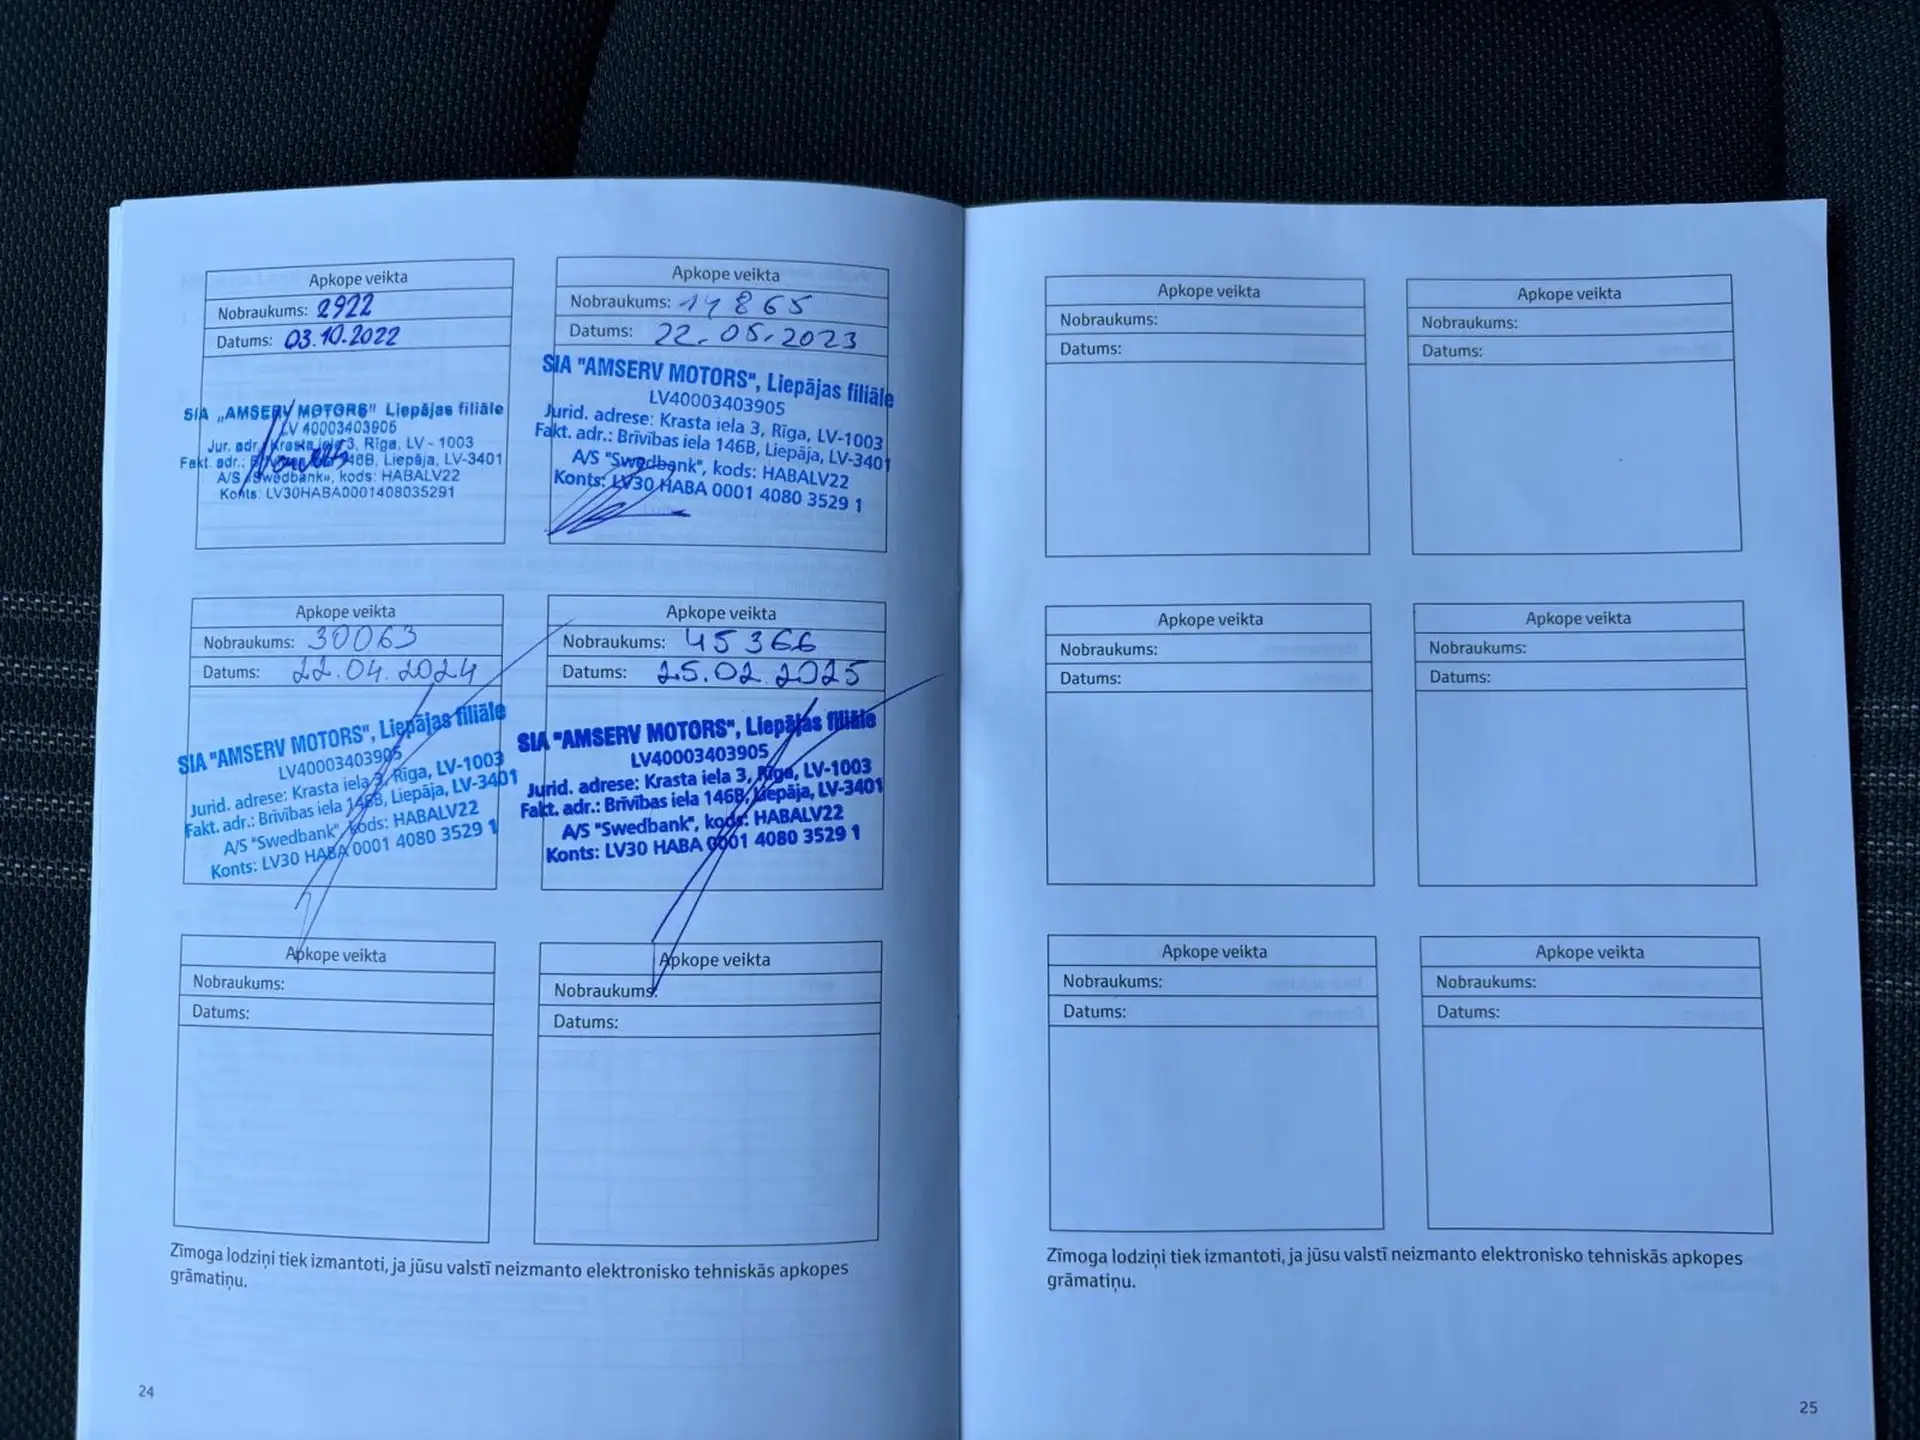 Apkope veikta
Nobraukums: 2922
Datums: 03.10.2022
SIA „AMSERV MOTORS" Liepājas filiāle
LV 40003403905
Jur. adr.: Krasta iela 3, Rīga, LV - 1003
Fakt. adr.: 146B, Liepāja, LV-3401
A/S «Swedbank», kods: HABALV22
Konts: LV30HABA0001408035291
Apkope veikta
Nobraukums: 14865
Datums: 22.05.2023
SIA "AMSERV MOTORS", Liepājas filiāle
LV40003403905
Jurid. adrese: Krasta iela 3, Rīga, LV-1003
Fakt. adr.: Brīvības iela 146B, Liepāja, LV-3401
A/S "Swedbank", kods: HABALV22
Konts: LV30 HABA 0001 4080 3529 1
Apkope veikta
Nobraukums: 30063
Datums: 22.04.2024
SIA "AMSERV MOTORS", Liepājas filiāle
LV40003403905
Jurid. adrese: Krasta iela 3, Rīga, LV-1003
Fakt. adr.: Brīvības iela 146B, Liepāja, LV-3401
A/S "Swedbank", kods: HABALV22
Konts: LV30 HABA 0001 4080 3529 1
Apkope veikta
Nobraukums: 45366
Datums: 25.02.2025
SIA "AMSERV MOTORS", Liepājas filiāle
LV40003403905
Jurid. adrese: Krasta iela 3, Rīga, LV-1003
Fakt. adr.: Brīvības iela 146B, Liepāja, LV-3401
A/S "Swedbank", kods: HABALV22
Konts: LV30 HABA 0001 4080 3529 1
Apkope veikta
Nobraukums:
Datums:
Apkope veikta
Nobraukums:
Datums:
Zīmoga lodziņi tiek izmantoti, ja jūsu valstī neizmanto elektronisko tehniskās apkopes
grāmatiņu.
24
Apkope veikta
Nobraukums:
Datums:
Apkope veikta
Nobraukums:
Datums:
Apkope veikta
Nobraukums:
Datums:
Apkope veikta
Nobraukums:
Datums:
Apkope veikta
Nobraukums:
Datums:
Apkope veikta
Nobraukums:
Datums:
Zīmoga lodziņi tiek izmantoti, ja jūsu valstī neizmanto elektronisko tehniskās apkopes
grāmatiņu.
25